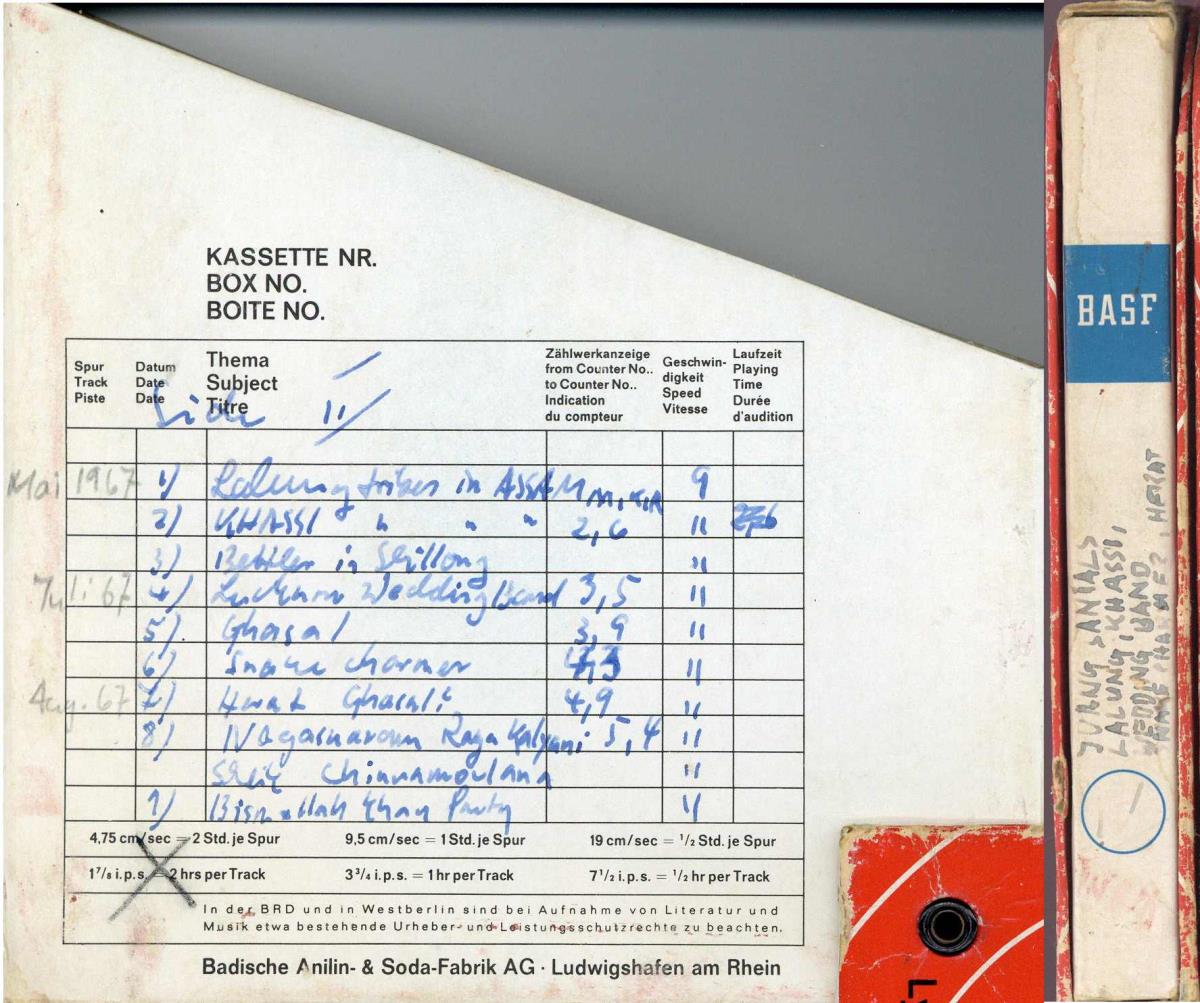 KASSETTE NR.
BOX NO.
BOITE NO.
Spur
Track
Piste
Datum
Date
Date
Thema
Subject
Titre
Zählwerkanzeige
from Counter No..
to Counter No..
Indication
du compteur
Geschwin-
digkeit
Speed
Vitesse
Laufzeit
Playing
Time
Durée
d'audition
Side II
Mai 1967 1) Lalung tribes in ASSAM MIKIR 9
2) KHASSI " " " 2,6 "
3) Bettler in Shillong "
Juli 67 4) Lucknow Wedding Band 3,5 "
5) Ghasal 3,9 "
6) Snake charmer "
Aug. 67 7) Herat Ghasali 4,9 "
8) Nagaswaram Raga Kalyani 5,4 "
Sheik Chinnamoulana "
9) Bismillah Khan Party "
4,75 cm/sec = 2 Std. je Spur 9,5 cm/sec = 1 Std. je Spur 19 cm/sec = 1/2 Std. je Spur
1 7/8 i.p.s. = 2 hrs per Track 3 3/4 i.p.s. = 1 hr per Track 7 1/2 i.p.s. = 1/2 hr per Track
In der BRD und in Westberlin sind bei Aufnahme von Literatur und
Musik etwa bestehende Urheber- und Leistungsschutzrechte zu beachten.
Badische Anilin- & Soda-Fabrik AG · Ludwigshafen am Rhein
BASF
LALUNG, KHASSI,
WEDDING BAND
HERAT